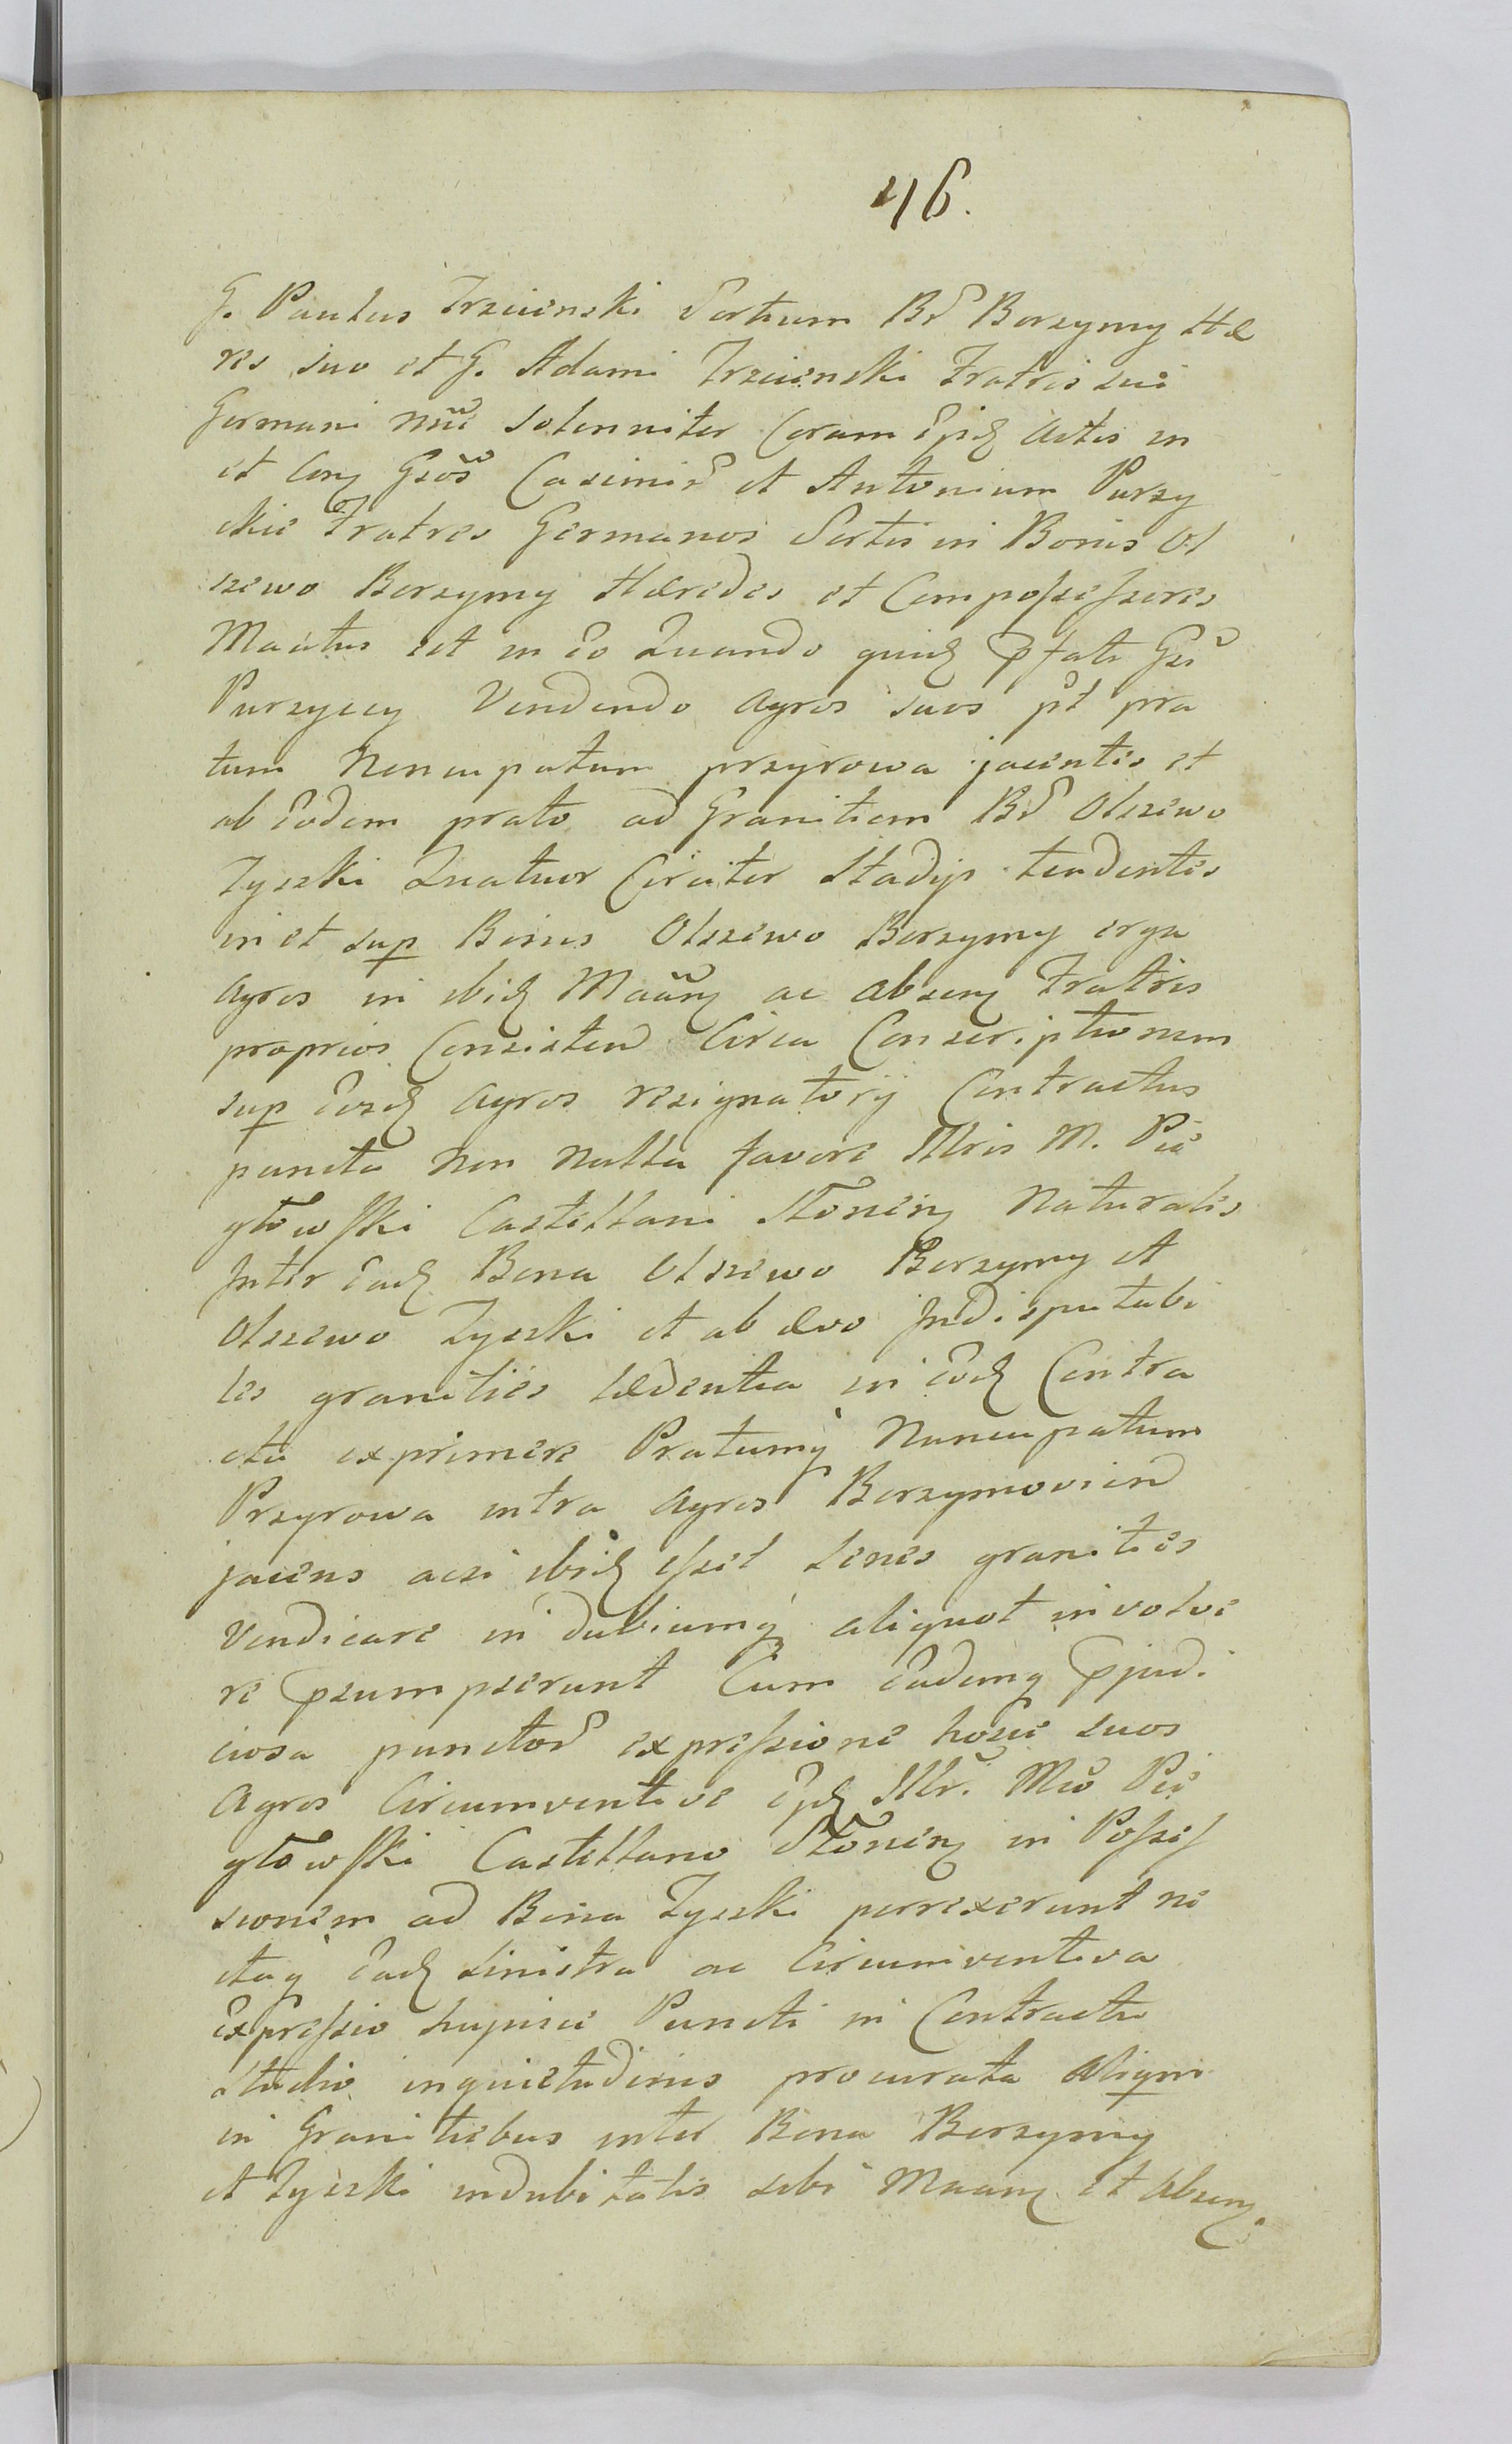 46.
G. Paulus Trzcienski Sortium Bd Borzymy Hæ
res suo et G. Adami Trzcienski Fratris sui
Germani nõie solenniter Coram Ejsdẽ Actis in
et conẽ Gsos Casimird et Antonium Purzy
ckie Fratres Germanos Sortis in Bonis Ol
szewo Borzymy Hæredes et Compossessores
Mactus est in eo Quando quidẽ pfati Gsi
Purzyccy Vendendo Agros suos pt pra
tum Noncupatum przyrowa jacentis et
ab eodem prato ad Granitiem Bd Olszewo
Tyszki Quatuor Circiter Stadijs tendentes
in et sup Bonis Olszewo Borzymy erga
Agros in ibidẽ Maãnẽ ac absenẽ Fratris
proprios Consistend Circa Conscriptionem
sup eosdẽ Agros resignatorij Contractus
puncta Non Nulla favore Illris M. Pię
głowski Castellani Słonenẽ Naturales
Inter eadẽ Bona Olszewo Borzymy et
Olszewo Tyszki et ab ævo Indisputabi
les granities lædentia in eodẽ Contra
ctu exprimere Pratumq Nuncupatum
Przyrowa intra Agros Borzymoviend
jacens acsi ibidẽ esset senes granities
Vendicare in dubiumq aliquot involve
re psumpserunt Cum eademq pjudi
ciosa punctord expressione hosce suos
Agros Circumventive Ejdẽ Illr. Mco Pię
głowski Castellano Słonenẽ in Posses
sionem ad Bona Tyszki perrexerunt ne
itaq eadẽ sinistra ac Circumventiva
Expressio hujusce Puncti in Contractu
studio inquietudinis procurata aliqm
in Granitiebus inter Bona Borzymy
et Tyszki indubitatis sibi Maanẽ et Absenẽ